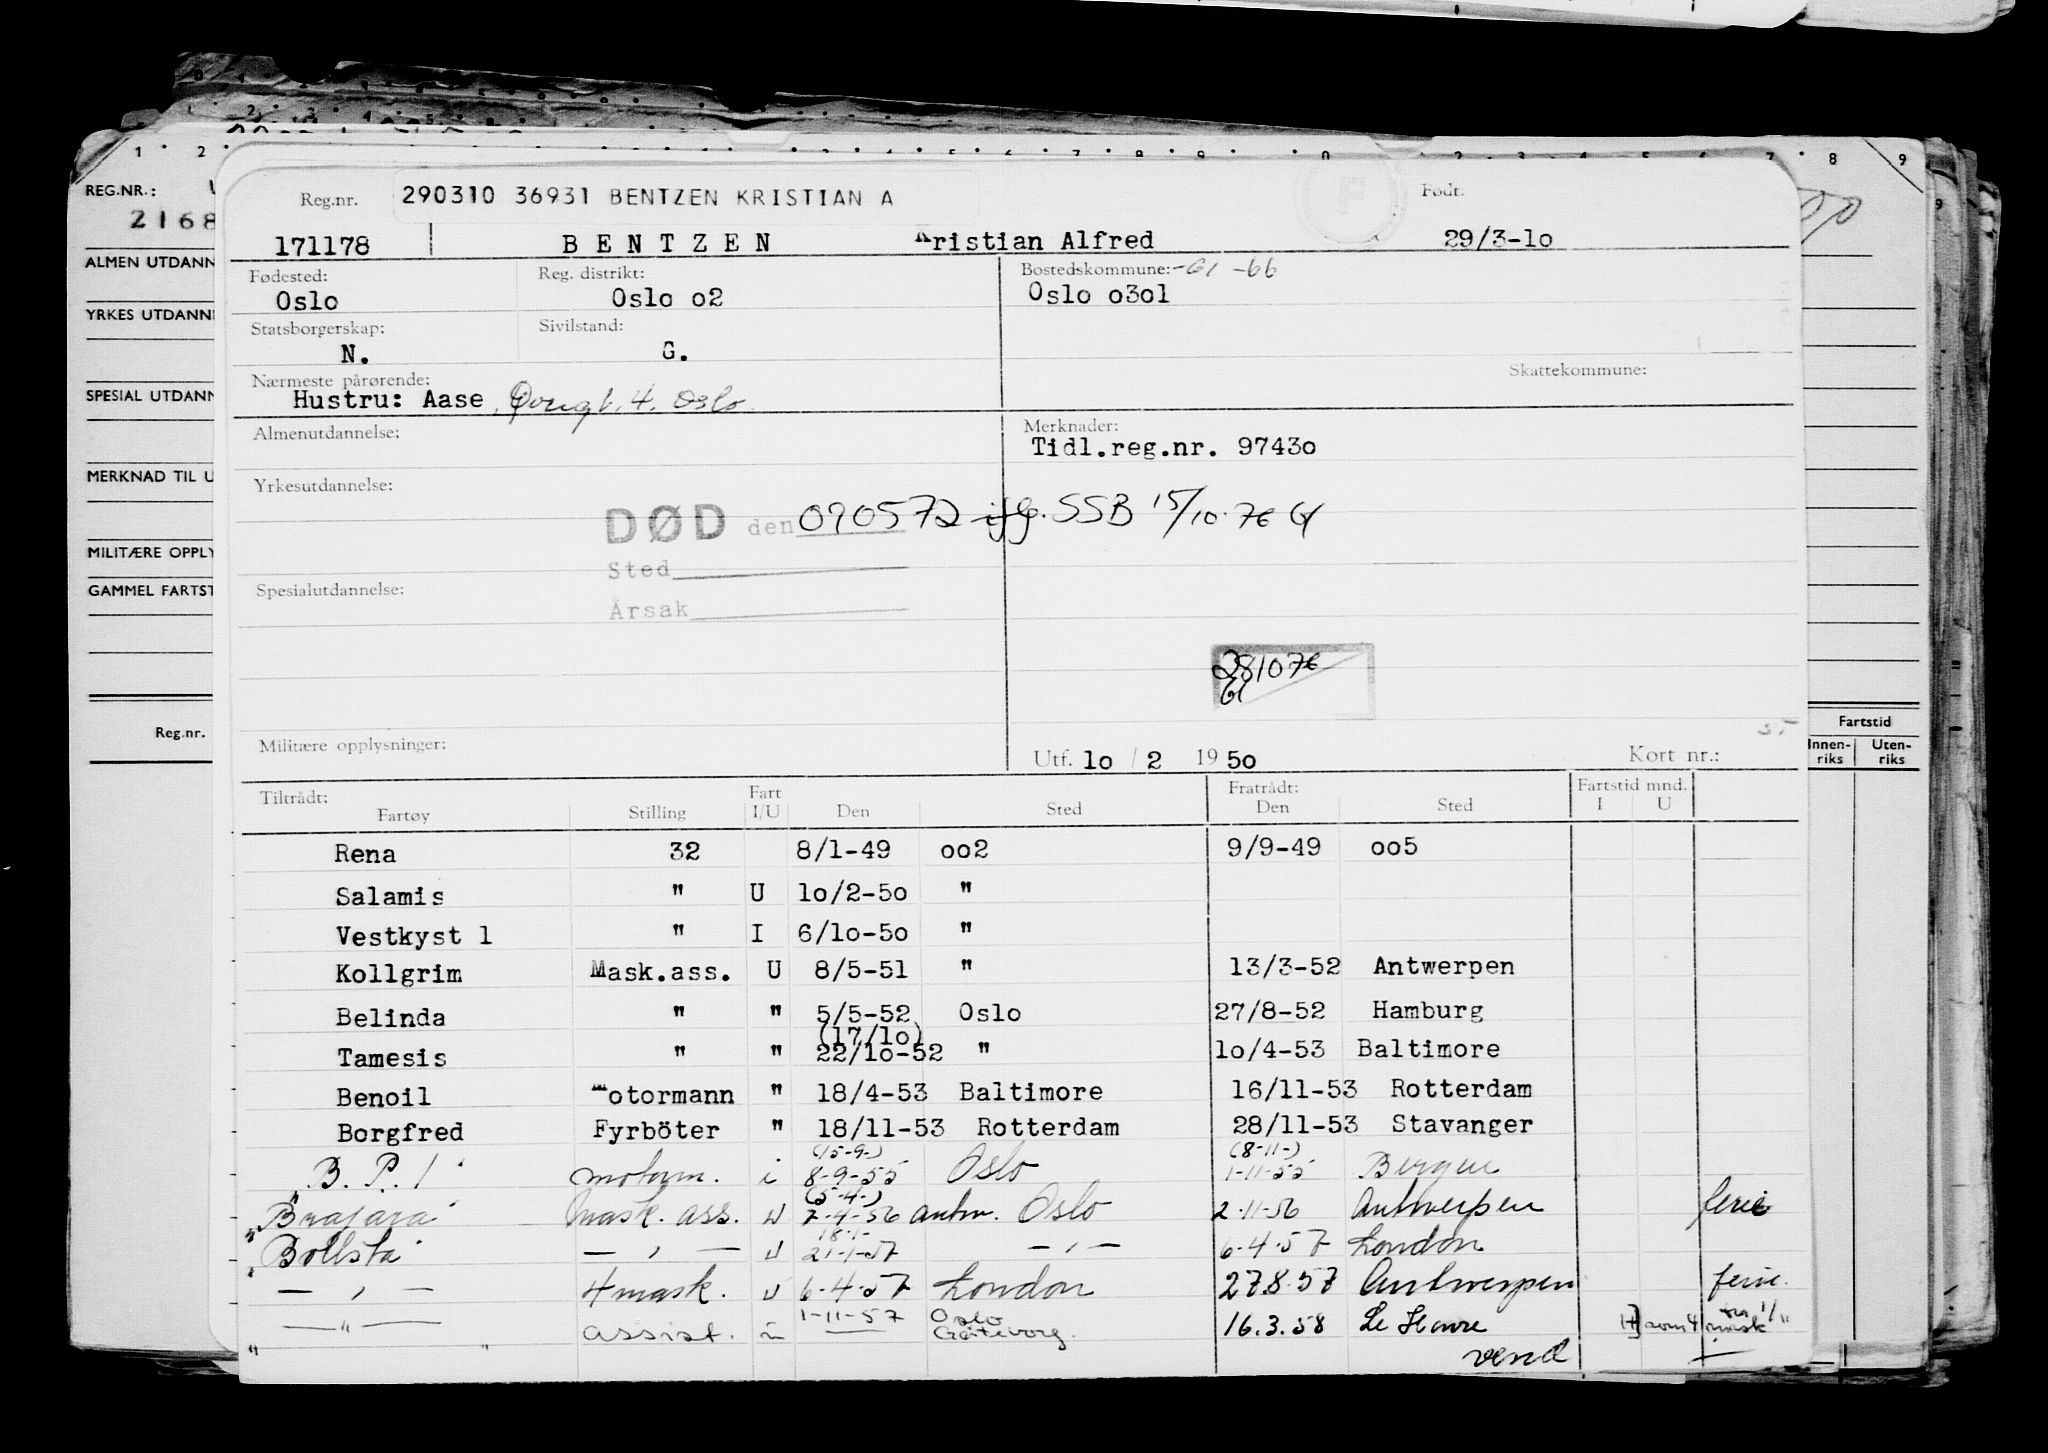 1 2 8 9
REG.NR.:
2168
ALMEN UTDANN
YRKES UTDANN
SPESIAL UTDANN
MERKNAD TIL U
MILITÆRE OPPLY
GAMMEL FARTST
Reg.nr.
Fartstid
Innen-riks Uten-riks
Reg.nr. 290310 36931 BENTZEN KRISTIAN A F Født:
171178 BENTZEN Kristian Alfred 29/3-1o
Fødested: Reg. distrikt: Bostedskommune: -61 -66
Oslo Oslo o2 Oslo o3o1
Statsborgerskap: Sivilstand:
N. G.
Nærmeste pårørende: Skattekommune:
Hustru: Aase, 4. Oslo
Almenutdannelse: Merknader:
Tidl.reg.nr. 9743o
Yrkesutdannelse:
DØD den 090572 iflg. SSB 15/10.76
Sted
Spesialutdannelse:
Årsak
281076
Militære opplysninger: Utf. 1o / 2 19 5o Kort nr.:
Tiltrådt: Fart Fratrådt: Fartstid mnd.
Fartøy Stilling I/U Den Sted Den Sted I U
Rena 32 8/1-49 oo2 9/9-49 oo5
Salamis " U 1o/2-5o "
Vestkyst 1 " I 6/1o-5o "
Kollgrim Mask.ass. U 8/5-51 " 13/3-52 Antwerpen
Belinda " " 5/5-52 Oslo 27/8-52 Hamburg
(17/1o)
Tamesis " " 22/1o-52 " 1o/4-53 Baltimore
Benoil Motormann " 18/4-53 Baltimore 16/11-53 Rotterdam
Borgfred Fyrböter " 18/11-53 Rotterdam 28/11-53 Stavanger
(15-9-) (8-11-)
B.P.1 motorm. i 8-9-55 Oslo 1-11-55 Bergen
(5-4-)
Brajara Mask. ass. u 7-4-56 antw. Oslo 2-11-56 Antwerpen ferie
18-1-
Bollsta — " — u 21-1-57 — " — 6-4-57 London
— " — 4 mask. u 6-4-57 London 27.8.57 Antwerpen ferie.
— " — assist. u 1-11-57 Oslo Göteborg. 16.3.58 Le Havre som 4 mask fra 1/11
vend